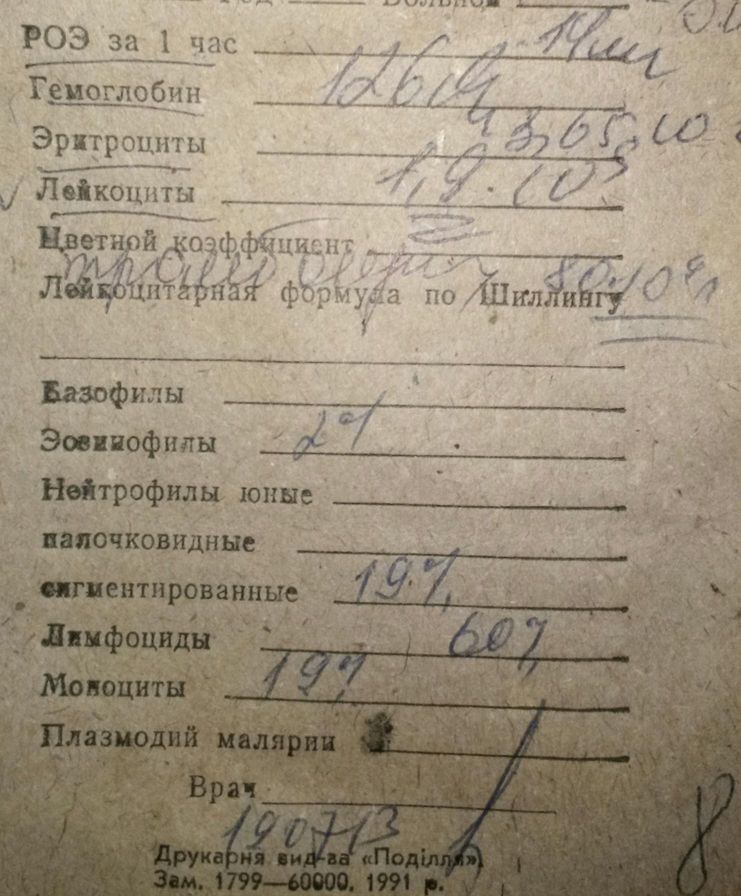 РОЭ за 1 час 14мм
Гемоглобин 126
Эритроциты 3,65 · 10
Лейкоциты 1,9 · 10⁹
Цветной коэффициент
тромбоциты 80·10⁹
Лейкоцитарная формула по Шиллингу
Базофилы
Эозинофилы 2%
Нейтрофилы юные
палочковидные
сигментированные 19%
Лимфоциды 60%
Моноциты 19%
Плазмодий малярии
Врач
190713
Друкарня вид-ва «Поділля»
Зам. 1799—60000. 1991 р.
8